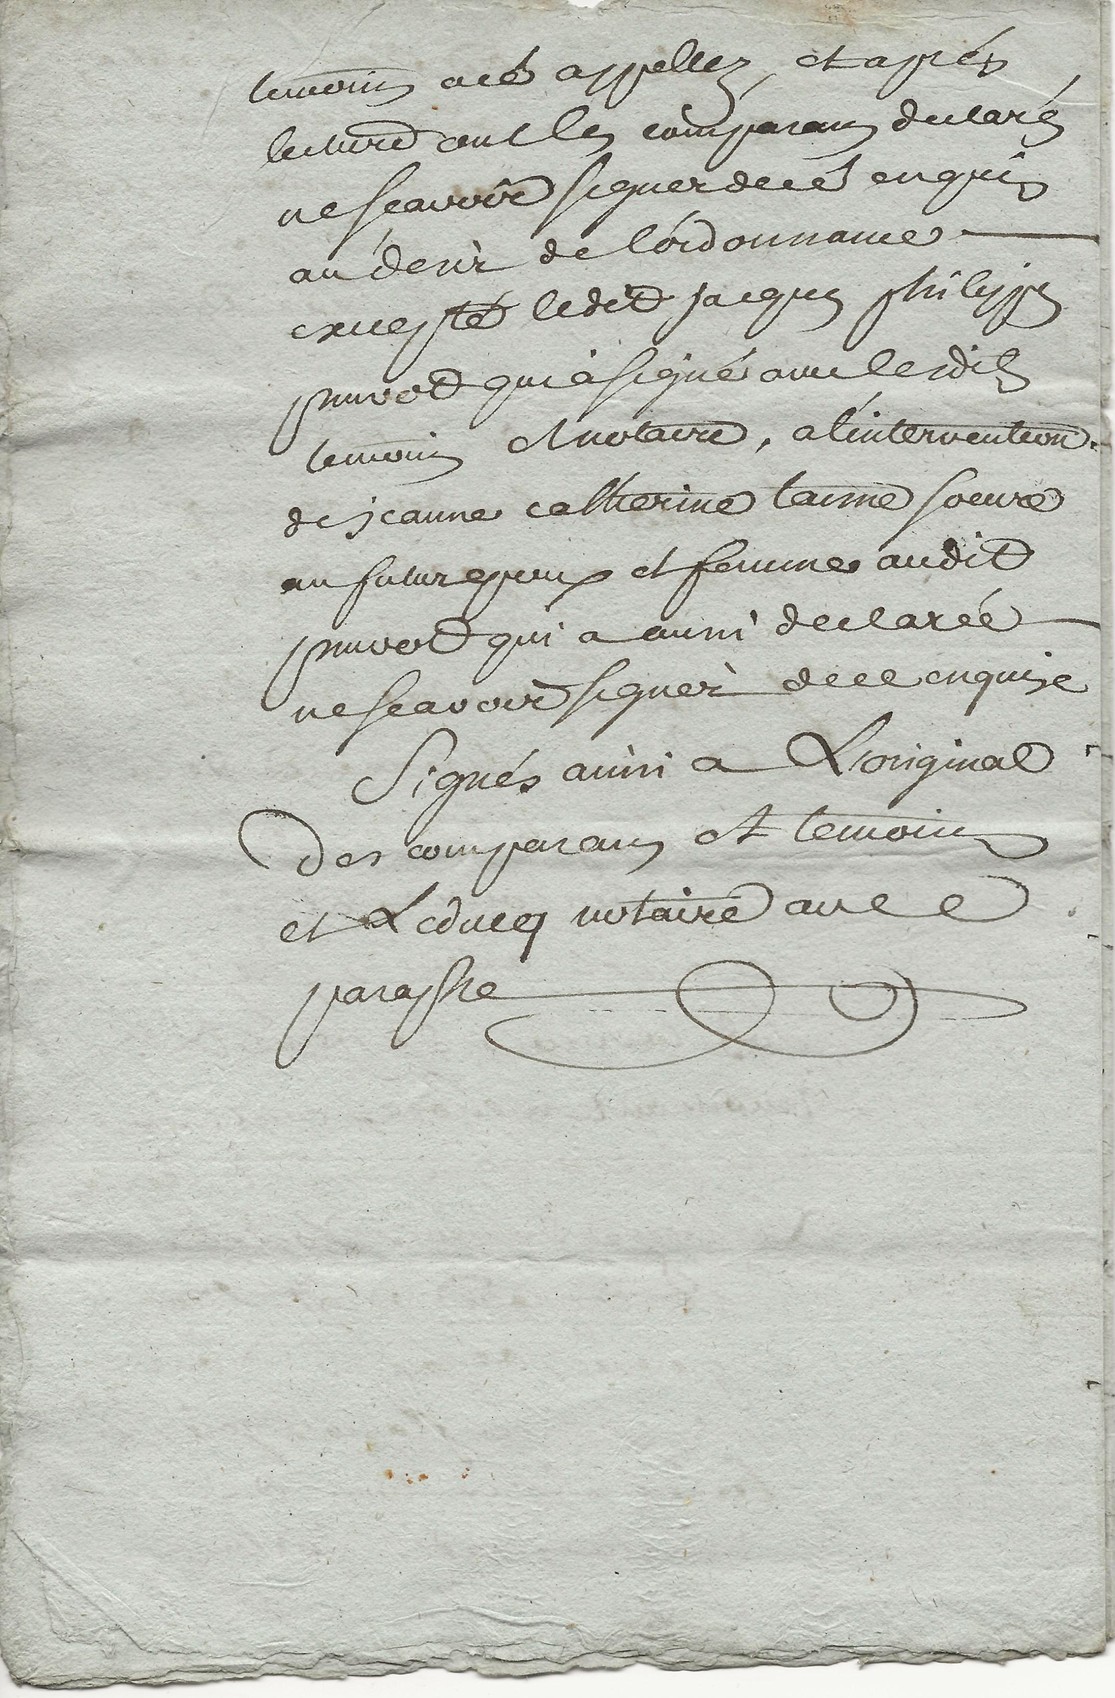 temoins a ce appellez, et après
lecture ont les comparans declarés
ne scavoir signer de ce enquis
au desir de l'ordonnance
excepté ledit jacques philippe
pruvot qui a signé avec lesdits
temoins et notaire, a l'intervention
de jeanne catherine soeure
au futur epoux et femme audit
pruvot qui a aussi declarée
ne scavoir signer de ce enquise
Signés ainsi a L'original
des comparans et temoins
et Leducq notaire avec
paraphe